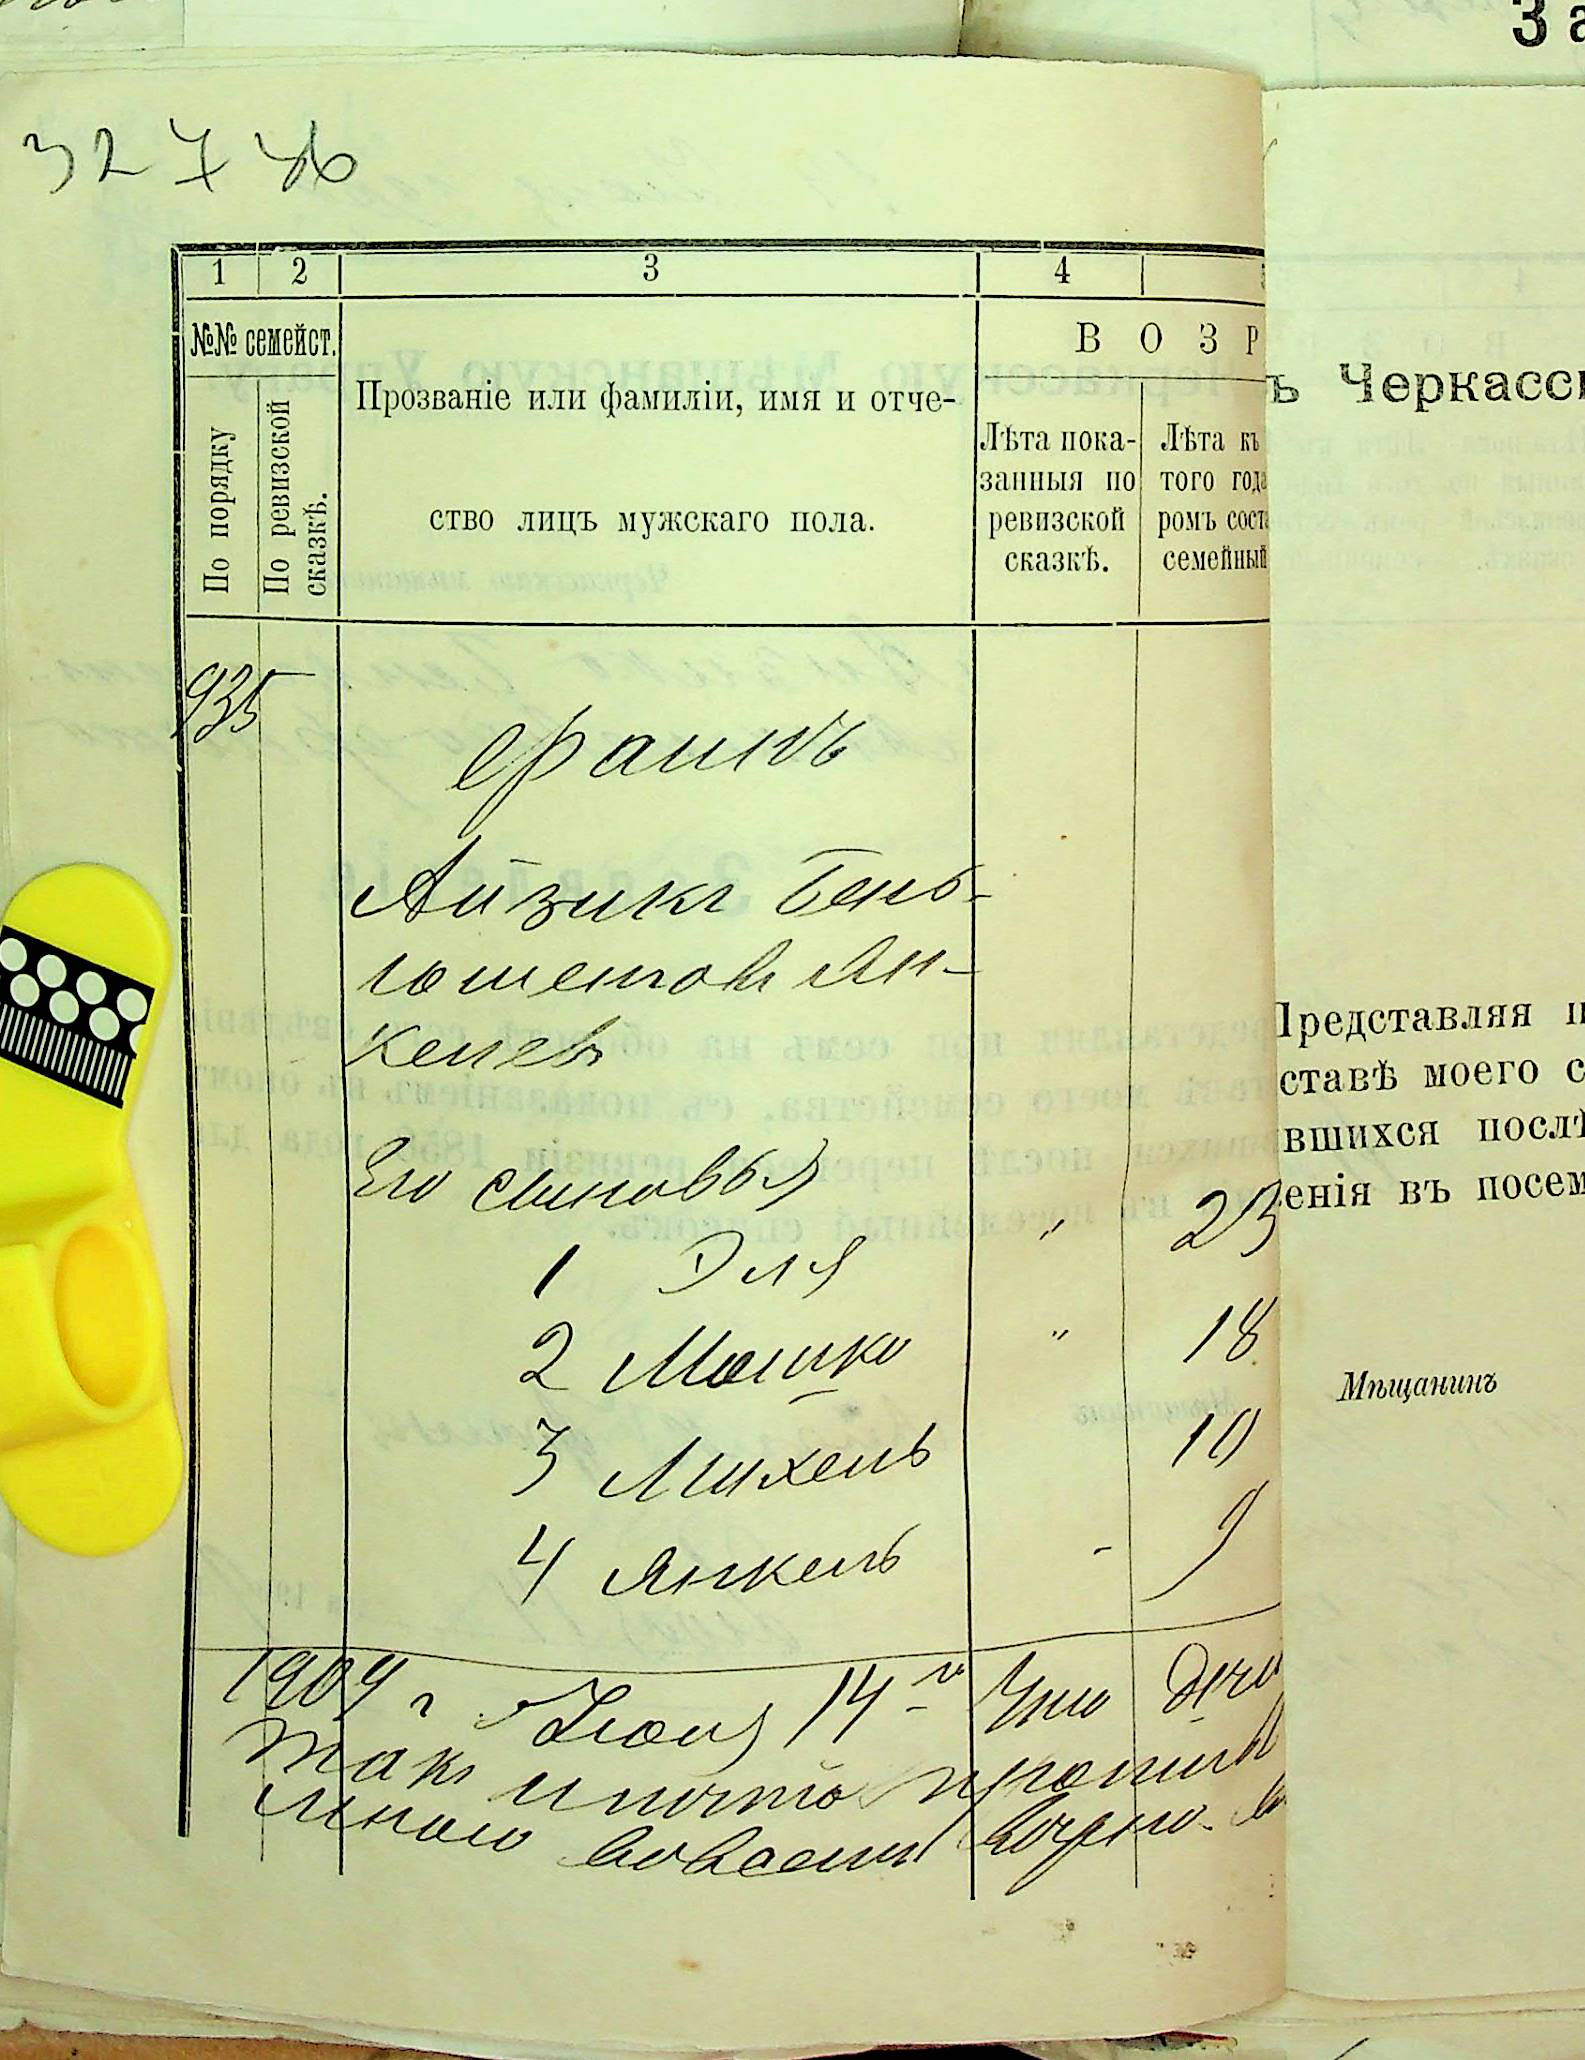 За
327 об
1 2 3 4
№№ семейст.
По порядку
По ревизской сказкѣ.
Прозваніе или фамиліи, имя и отче-
ство лицъ мужскаго пола.
ВОЗР
Лѣта пока-
занныя по
ревизской
сказкѣ.
Лѣта къ
того года
ромъ соста
семейный
935
Франкъ
Айзикъ Бень-
Ян-
келев
Его сыновья
1 Эля " 23
2 Мошко " 18
3 Михель 10
4 Янкель - 9
1909 г Іюня 14 го Что
такъ и
мною
ъ Черкасск
Представляя п
ставѣ моего с
вшихся послѣ
енія въ посем
Мѣщанинъ